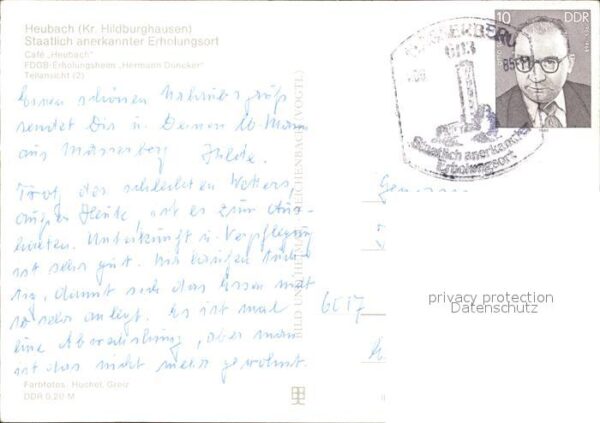 Heubach (Kr. Hildburghausen)
Staatlich anerkannter Erholungsort
Café „Heubach"
FDGB-Erholungsheim „Hermann Duncker"
Teilansicht (2)
Einen schönen Urlaubsgruß
sendet Dir u. Deinem
aus Masserberg Hilde.
Trotz des schlechten Wetters,
außer Heute, ist es zum Aus-
halten. Unterkunft u. Verpflegung
ist sehr gut. Wir laufen
damit sich das Essen nicht
so sehr anlegt. Es ist mal
eine Abwechslung, aber man
ist das nicht mehr gewohnt.
Farbfotos: Huchel, Greiz
DDR 0,20 M
BILD UND HEIMAT REICHENBACH (VOGTL)
10 DDR
MASSERBERG
6113
Staatlich anerkannter
Erholungsort
6017
privacy protection
Datenschutz